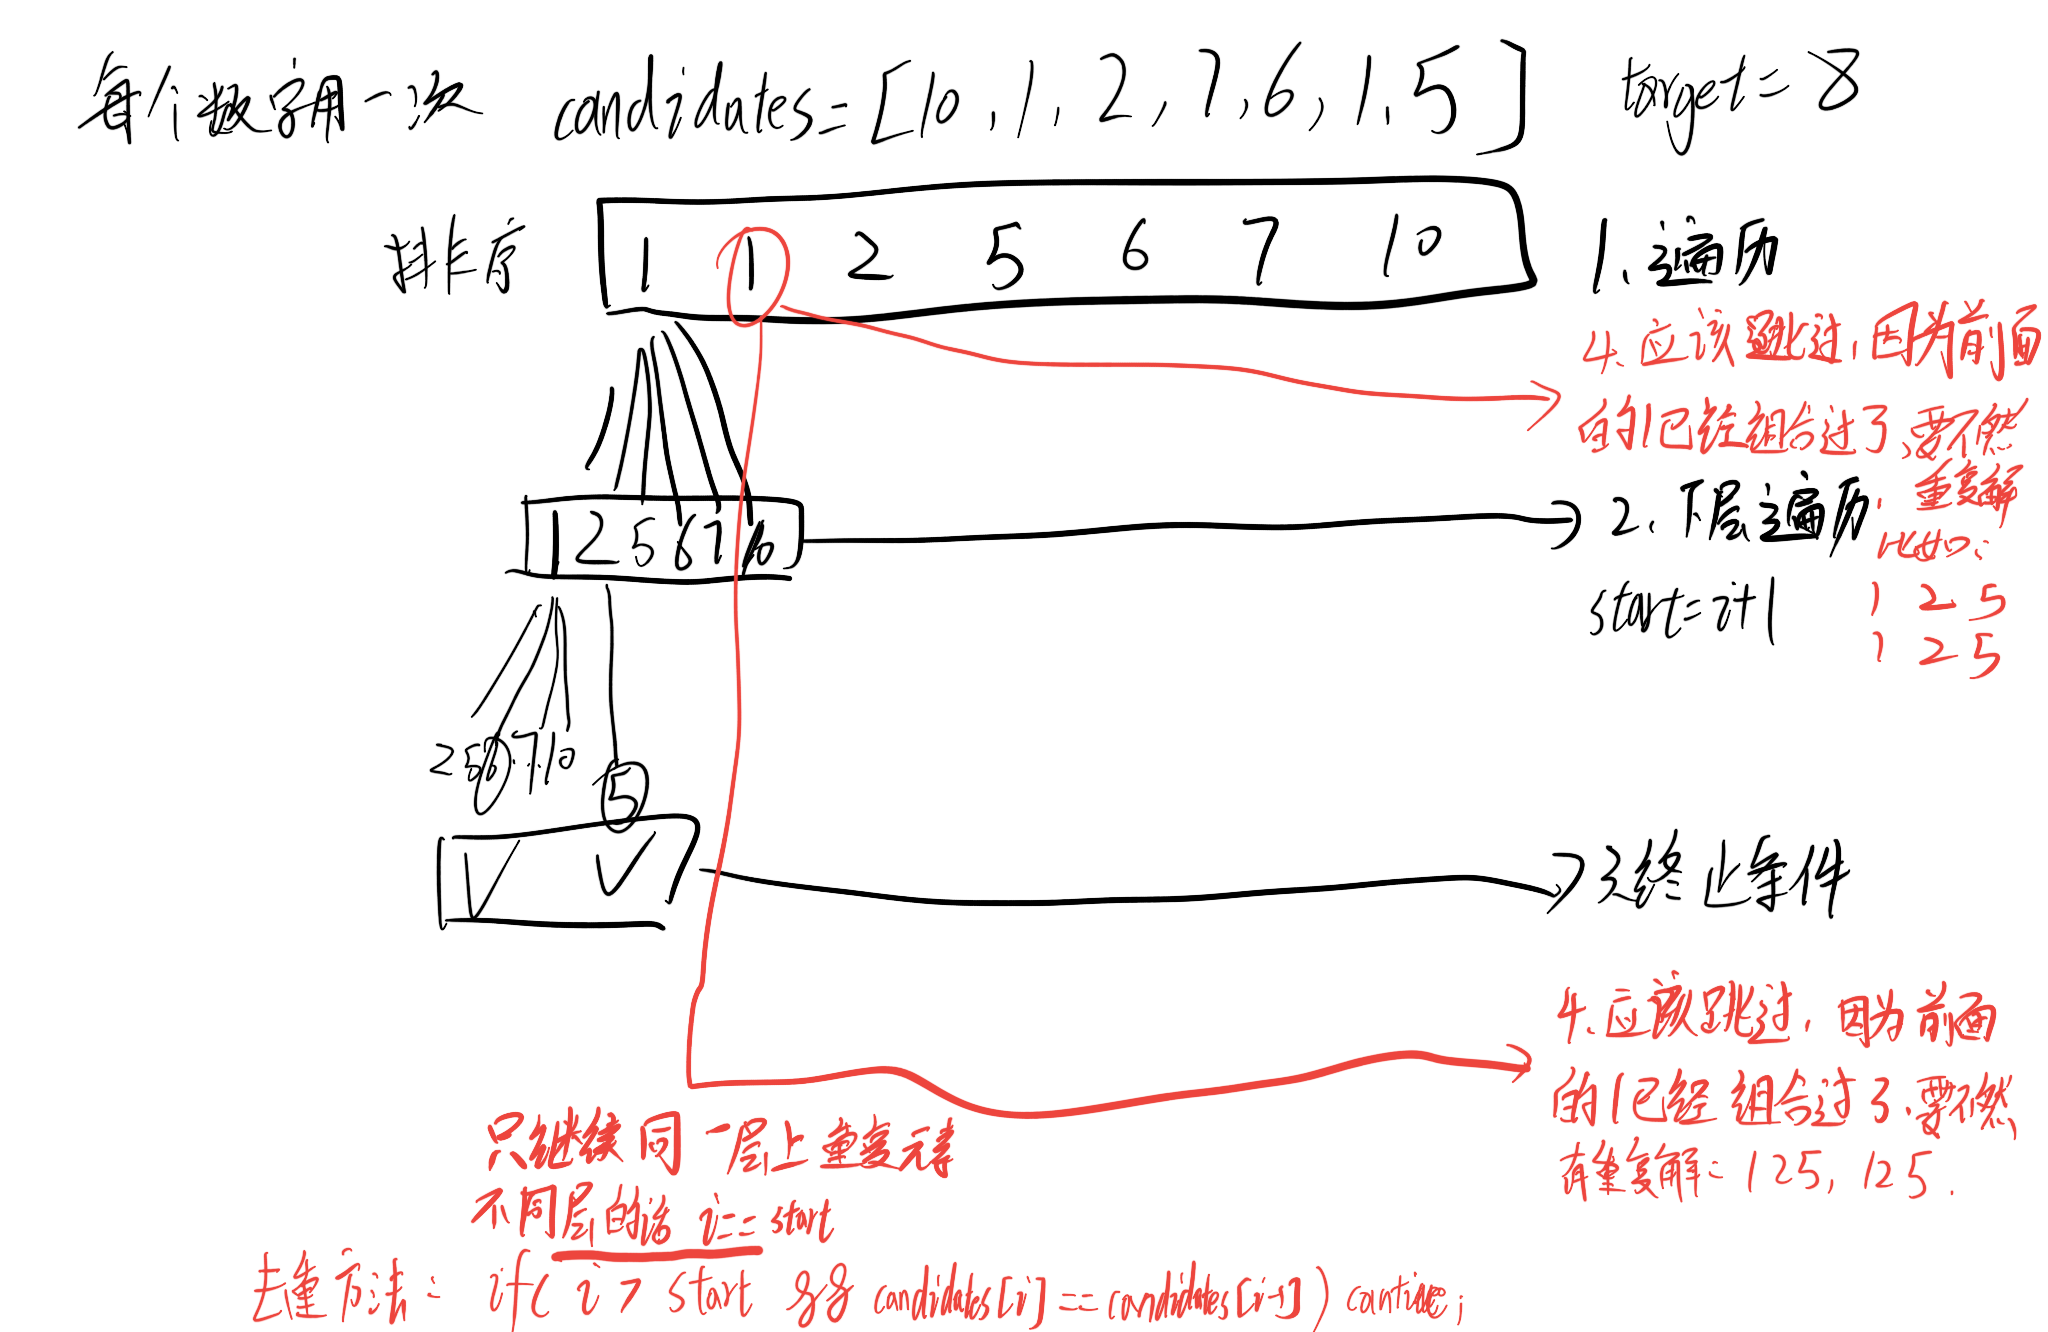 每个数字用一次 candidates=[10,1,2,7,6,1,5] target=8
排序 1 1 2 5 6 7 10 1、遍历
4、应该跳过，因为前面
的1已经组合过了，要不然
重复解
比如：
1 2 5
1 2 5
1 2 5 6 7 10 2、下层遍历
start=i+1
2 5 6 7 10 5
3终止条件
4、应该跳过，因为前面
的1已经组合过了，要不然
有重复解：125，125.
只继续同一层上重复元素
不同层的话 i==start
去重方法： if( i > start && candidates[i]==candidates[i-1]) continue;